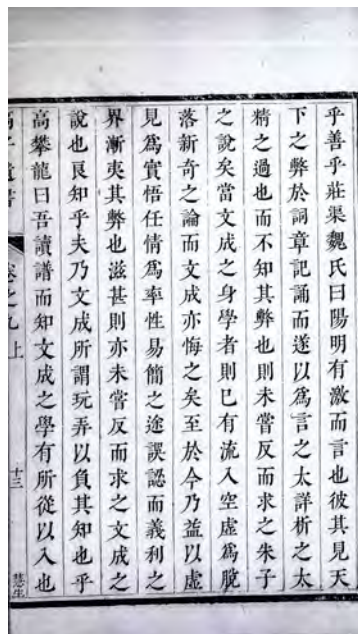 乎善乎莊渠魏氏曰陽明有激而言也彼其見天
下之弊於詞章記誦而遂以爲言之太詳析之太
精之過也而不知其弊也則未嘗反而求之朱子
之說矣當文成之身學者則已有流入空虛爲脫
落新奇之論而文成亦悔之矣至於今乃益以虛
見爲實悟任情爲率性易簡之途誤認而義利之
界漸夷其弊也滋甚則亦未嘗反而求之文成之
說也良知乎夫乃文成所謂玩弄以負其知也乎
高攀龍曰吾讀譜而知文成之學有所從以入也
高子遺書
卷之九上
十三